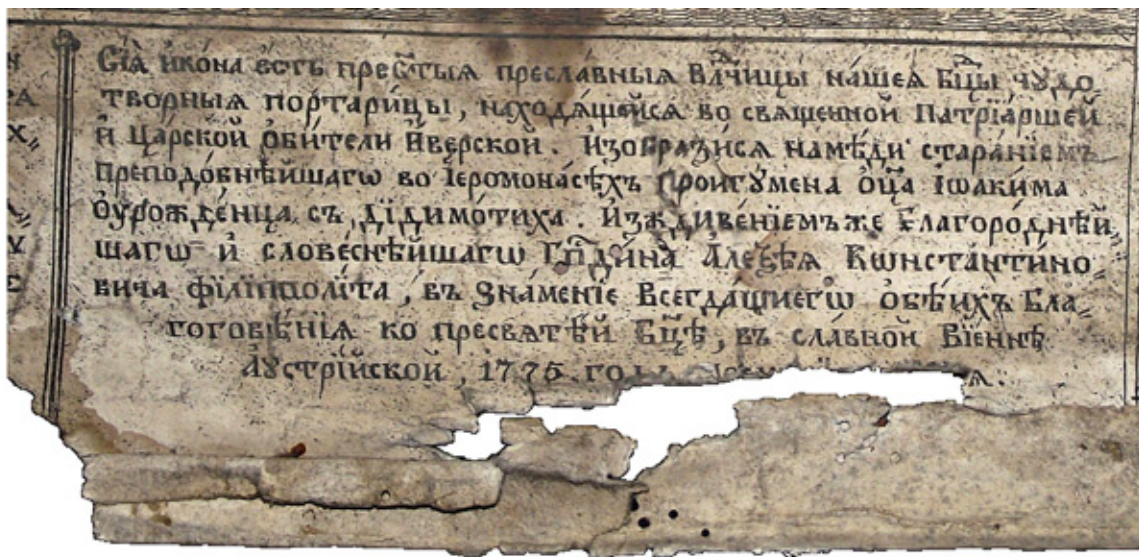 Сїѧ̀ и҆ко́на є҆́сть прест҃ыѧ преславныѧ Вл҃чицы на́шеѧ Бц҃ы, чꙋдо„
творныѧ портари́цы, находѧ́щейсѧ во свѧщенной Патрїа́ршей
и҆ Ца́рской ѻ҆би́тели И҆́верской. И҆зѡбрази́сѧ на мѣ́ди стара́нїемъ
преподо́бнѣйшагѡ во І҆еромона́сѣхъ проигꙋ́мена ѻ҆ц҃а І҆ѡаки́ма
Оу҆рожде́нца, съ, Дїдимо́тиха. И҆зждиве́нїемъ же Благоро́днѣй„
шагѡ и҆ слове́снѣйшагѡ Гп҃ди́на А҆леѯѣ́ѧ Кѡнстанти́но„
вича фїлїпполі́та, въ Зна́менїе Всегда́шнегѡ ѻ҆бѣ́ихъ Бла„
гоговѣ́нїѧ ко пресвѧтѣ́й Бц҃ѣ, въ сла́вной Вїе́ннѣ
Аꙋстрі́йской, 1775.
Н
РА
Х„
У
Е